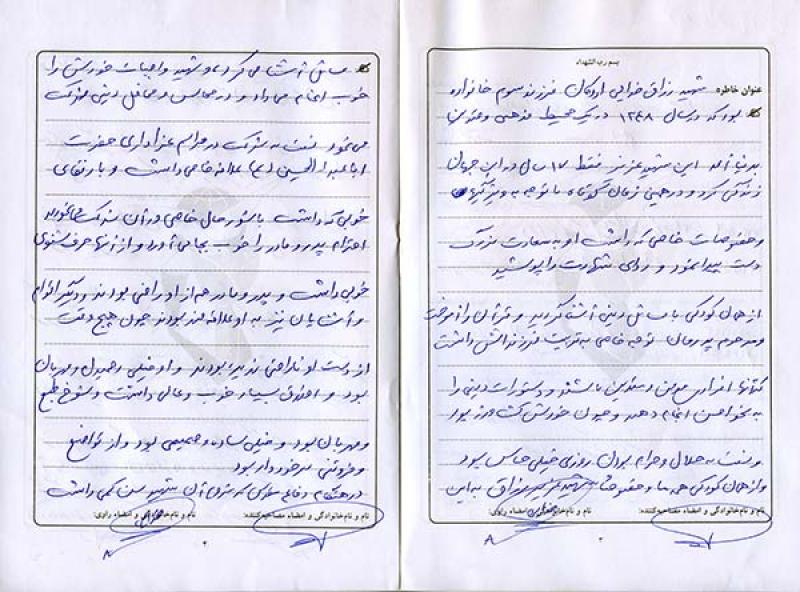 بسم رب الشهداء
عنوان خاطره شهید رزاق خدایی اردکان فرزند سوم خانواده
بود که در سال ۱۳۴۸ در یک محیط مذهبی و متدین
بدنیا آمد این شهید عزیز فقط ۱۷ سال در این جهان
زندگی کرد و در همین زمان کوتاه با توجه به ویژگیهای
و خصوصیات خاصی که داشت او به سعادت بزرگ
دست پیدا نمود و ردای شهادت را پوشید
از همان کودکی با مسائل دینی آشنا گردید و قرآن را آموخت
و مرحوم پدرمان توجه خاصی به تربیت فرزندانش داشت
که آنها افرادی مومن و متدین باشند و دستورات دینی را
به نحو احسن انجام دهند و چون خودش کشاورز بود
و نسبت به حلال و حرام بودن روزی خیلی حساس بود
و از همان کودکی همه ما و خصوصا شهید عزیز رزاق به این
نام و نام‌خانوادگی و امضاء مصاحبه‌کننده: نام و نام‌خانوادگی و امضاء راوی:
مسائل آشنا می‌کرد و شهید واجبات خودش را
خوب انجام می‌داد و در مجالس و محافل دینی شرکت
می‌نمود نسبت به شرکت در مراسم عزاداری حضرت
اباعبدالحسین (ع) علاقه خاصی داشت و با رفقای
خوبی که داشت با شور حال خاصی در آن شرکت می‌نمودند
احترام پدر و مادر را خوب بجا می‌آورد و از آنها حرف شنوی
خوبی داشت و پدر و مادر هم از او راضی بودند و دیگر اقوام
و آشنایان نیز به او علاقه مند بودند چون هیچ وقت
از دست او ناراضی ندیده بودند و او خیلی رحیم دل و مهربان
بود و اخلاق بسیار خوب و عالی داشت و شوخ طبع
و مهربان بود و خیلی ساده و صمیمی بود و از تواضع
و فروتنی برخوردار بود
در هنگام دفاع مقدس که شروع آن شهید سن کمی داشت
نام و نام‌خانوادگی و امضاء مصاحبه‌کننده: نام و نام‌خانوادگی و امضاء راوی: